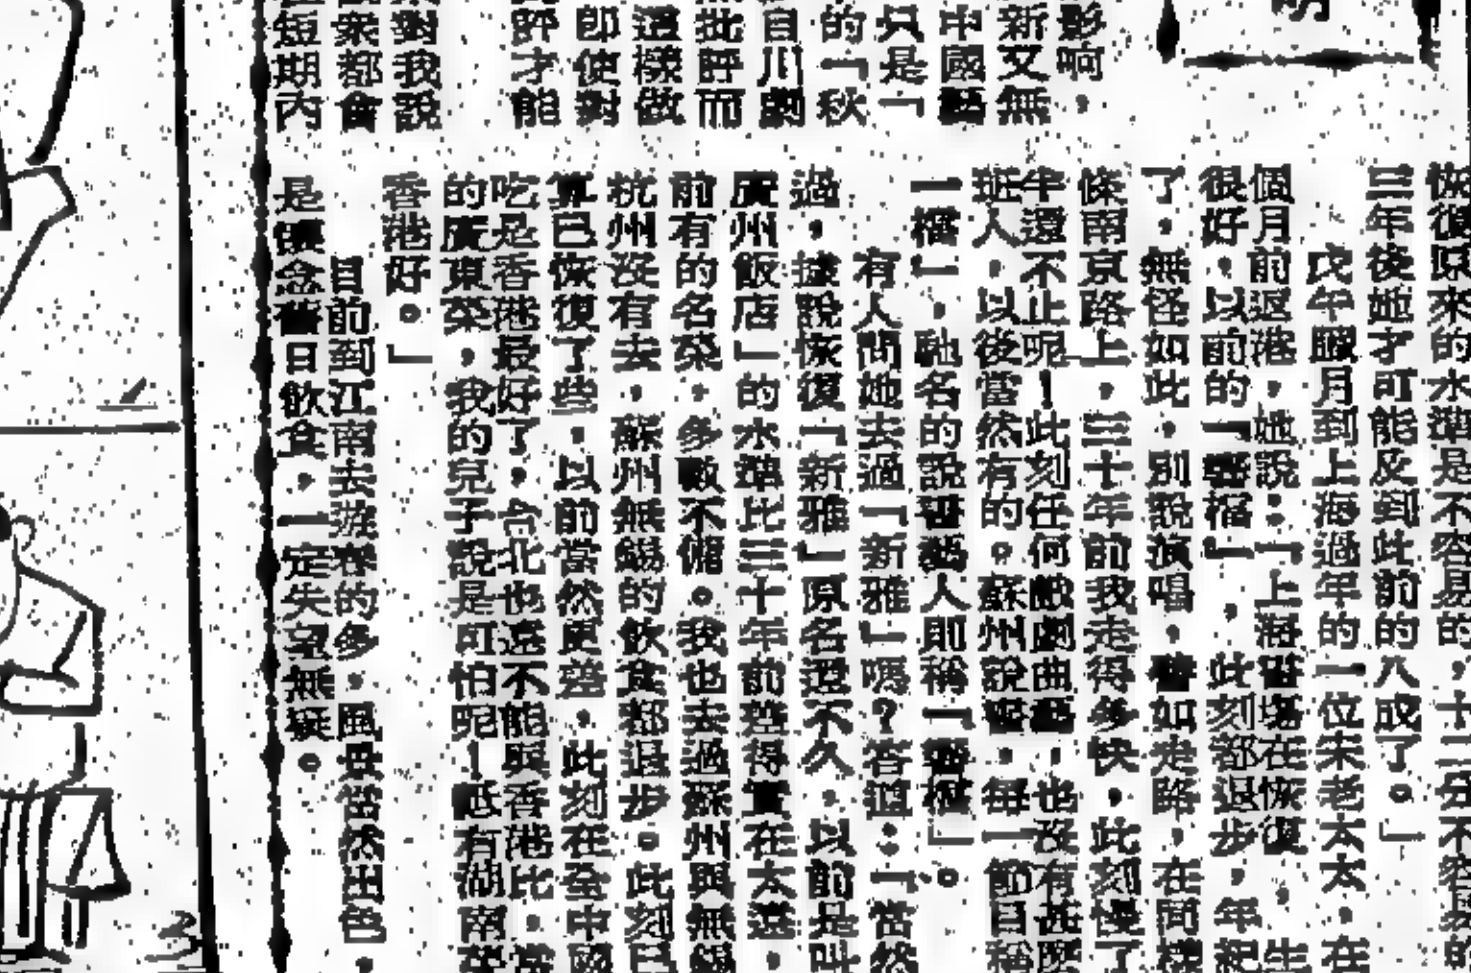 影响，
新又無
中國藝
只是「
的「秋
自川劇
批評而
這樣做
即使對
評才能
對我說
眾都會
短期內
恢復原來的水準是不容易的，十二分不容易的
三年後她才可能及到此前的八成了。」
戊午臘月到上海過年的一位宋老太太，在
個月前返港，她說：「上海書場在恢復
很好，以前的「響檔」，此刻都退步，年紀
了，無怪如此，別說演唱，譬如走路，在同樣
條南京路上，三十年前我走得多快，此刻慢了
半還不止呢！此刻任何戲劇曲藝，也沒有甚麼
班人，以後當然有的。蘇州說書，每一節目稱
一檔」，馳名的說書藝人則稱「響檔」。
有人問她去過「新雅」嗎？答道：「當然
過，據說恢復「新雅」原名還不久，以前是叫
廣州飯店」的水準比三十年前差得實在太遠，
前有的名菜，多數不備。我也去過蘇州與無錫
杭州沒有去，蘇州無錫的飲食都退步。此刻已
算已恢復了些，以前當然更差，此刻在全中國
吃是香港最好了，台北也遠不能與香港比，
的廣東菜，我的兒子說是可怕呢！祇有湖南菜
香港好。」
目前到江南去游春的多，風景當然出色，
是懷念舊日飲食，一定失望無疑。